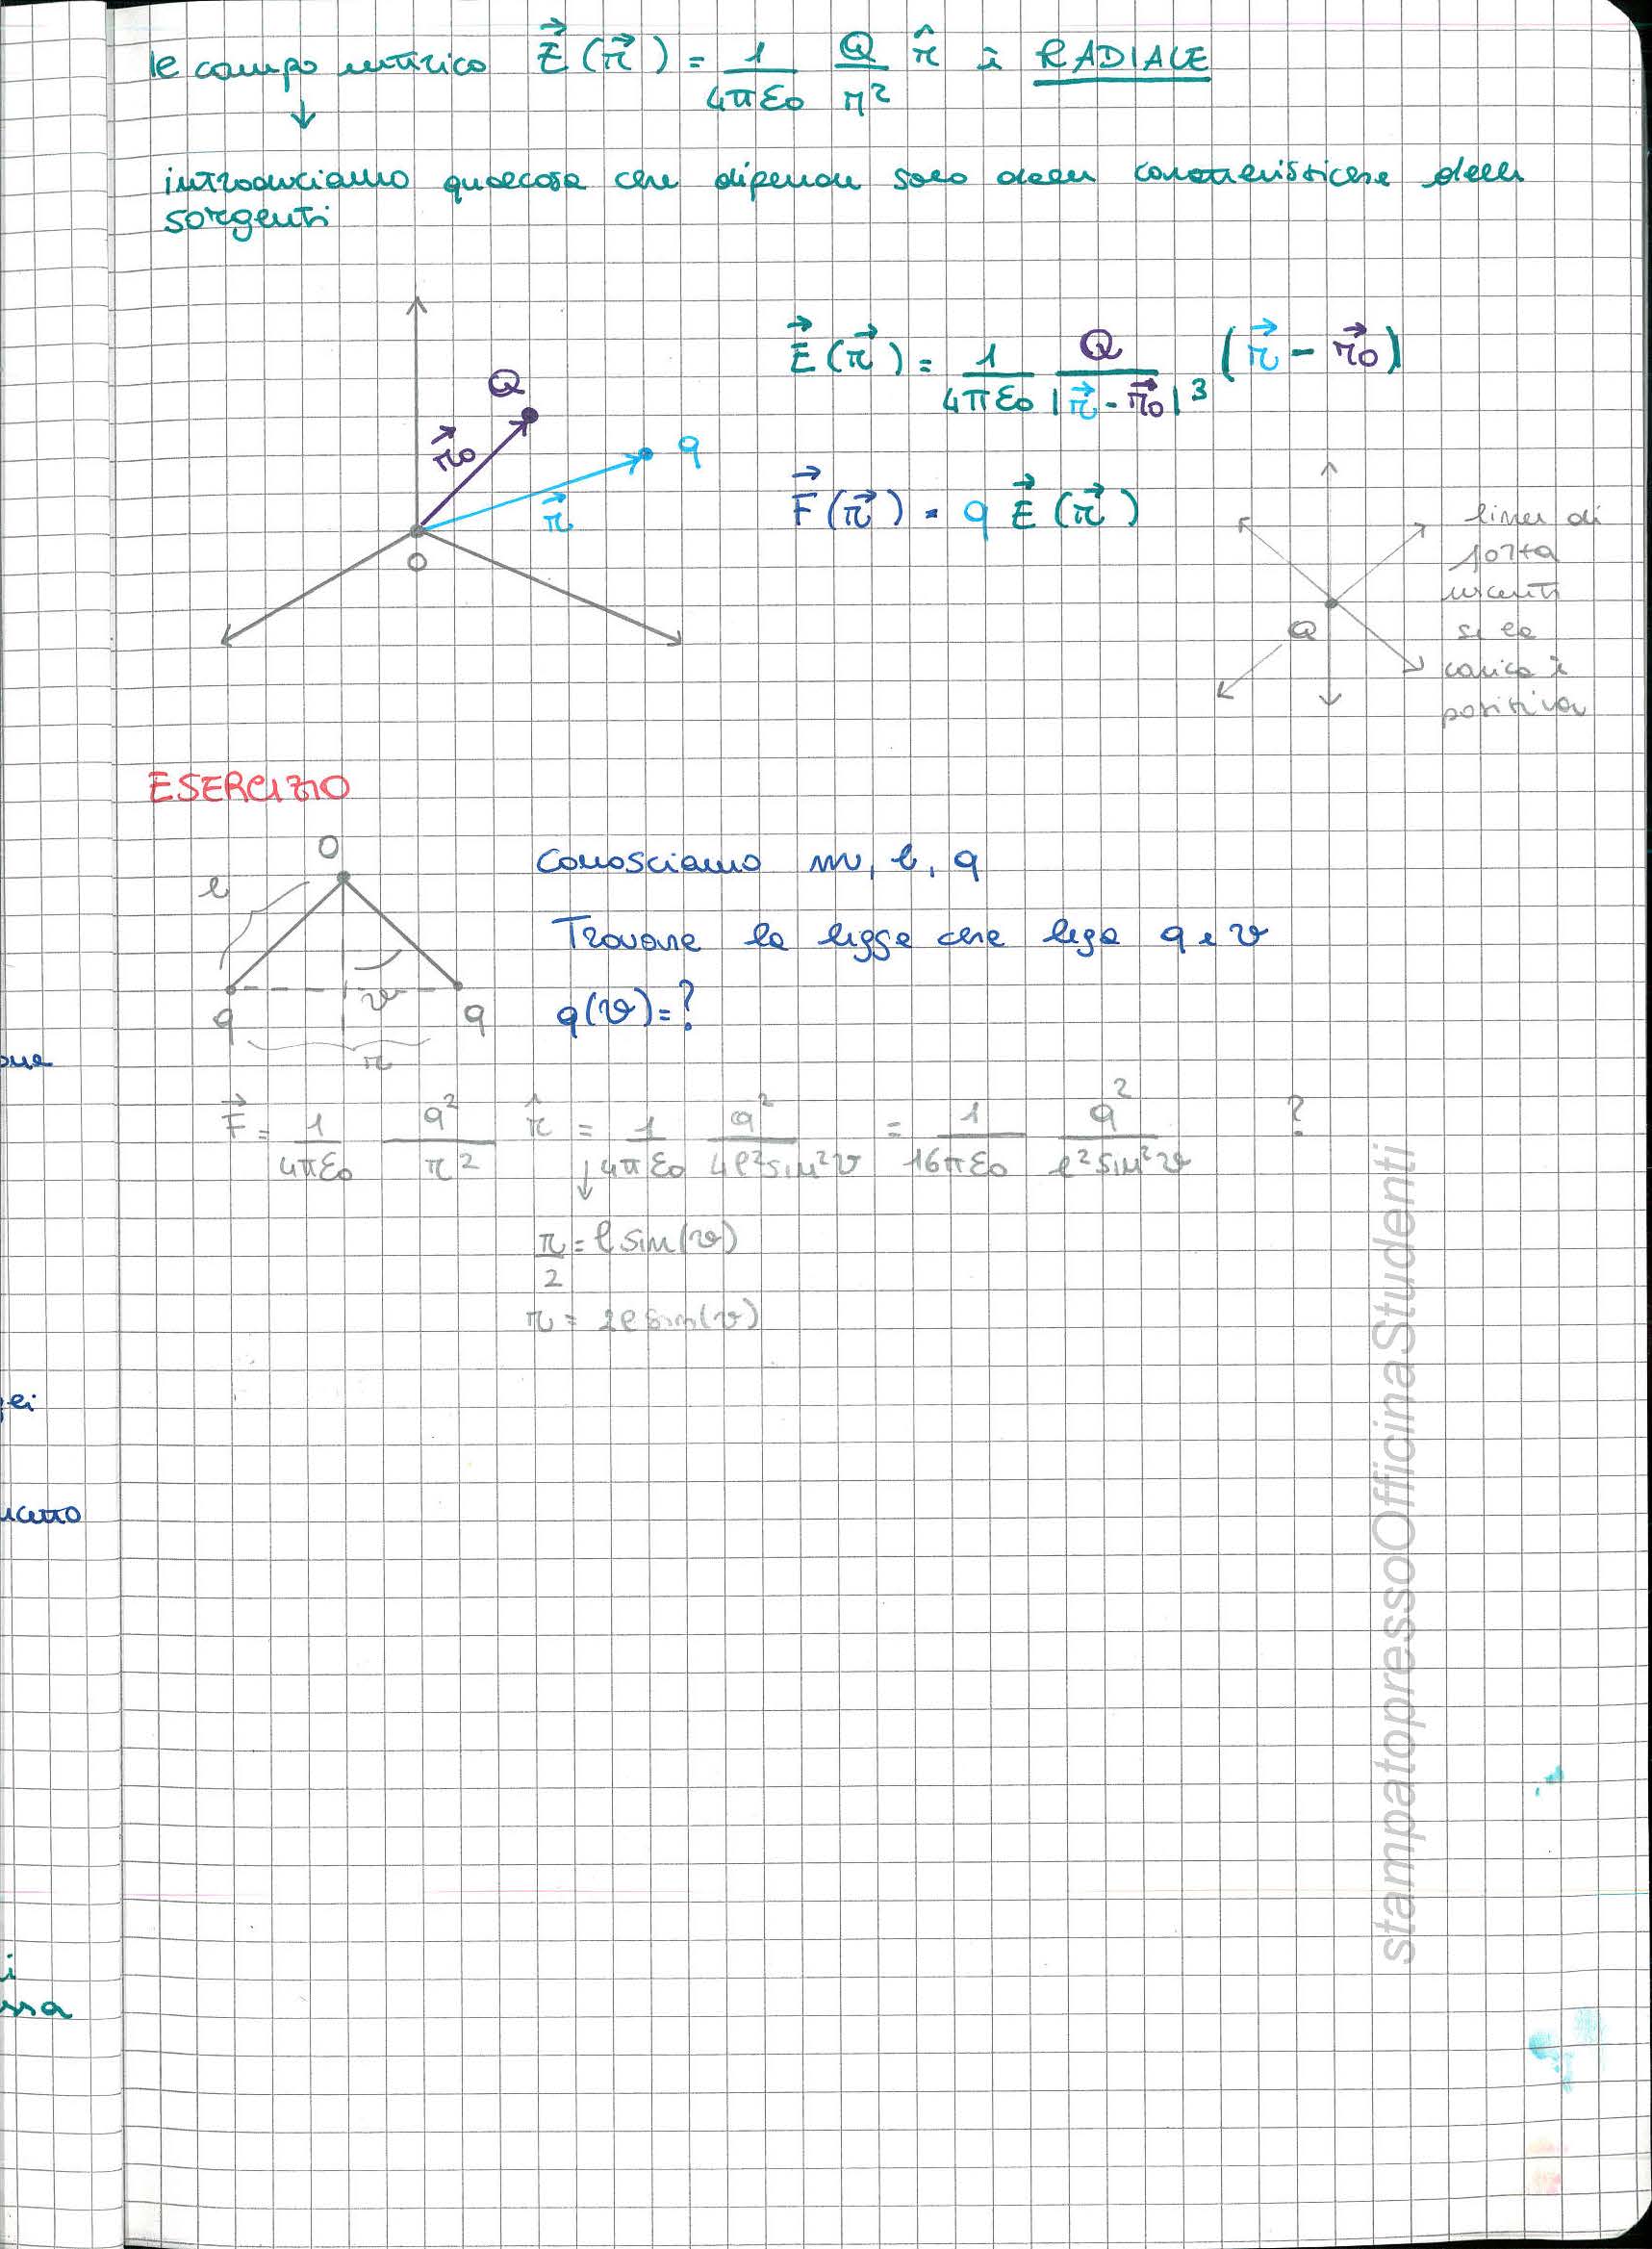 Il campo elettrico E⃗(r⃗) = 1/(4πε₀) Q/r² r̂ è RADIALE
↓
introduciamo qualcosa che dipende solo dalle caratteristiche delle
sorgenti
E⃗(r⃗) = 1/(4πε₀) Q/|r⃗ - r⃗₀|³ (r⃗ - r⃗₀)
Q
r⃗₀
q
r⃗
O
F⃗(r⃗) = q E⃗(r⃗)
linee di
forza
uscenti
se la
carica è
positiva
Q
ESERCIZIO
O
l
ϑ
q
q
r
Conosciamo m, l, q
Trovare la legge che lega q e ϑ
q(ϑ) = ?
F⃗ = 1/(4πε₀) q²/r² r̂ = 1/(4πε₀) q²/(4l²sin²ϑ) = 1/(16πε₀) q²/(l²sin²ϑ) ?
↓
r/2 = l sin(ϑ)
r = 2l sin(ϑ)
ei
i
stampatopressoOfficinaStudenti